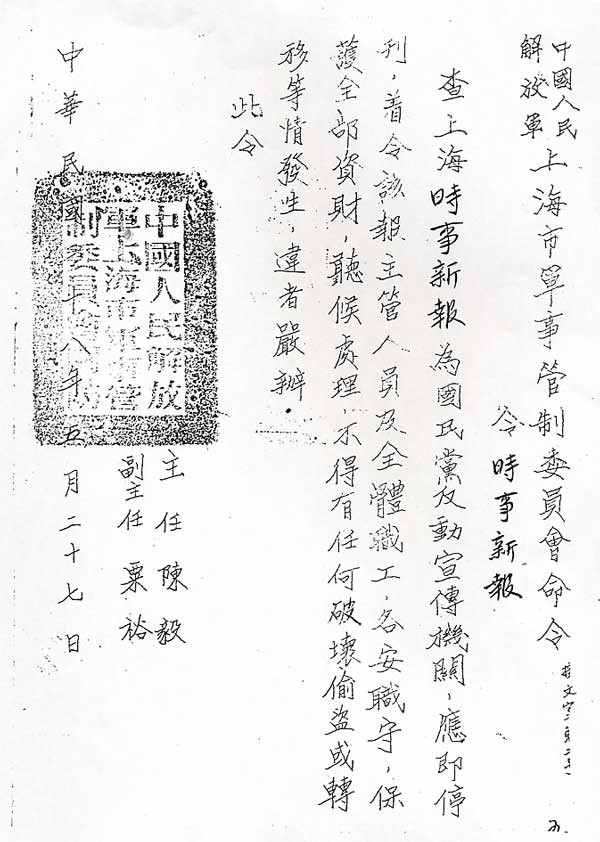 中國人民
解放軍
上海市軍事管制委員會命令
令 時事新報
查上海時事新報為國民黨反動宣傳機關，應即停
刊，着令該報主管人員及全體職工，各安職守，保
護全部資財，聽候處理，不得有任何破壞偷盜或轉
移等情發生，違者嚴辦．
此令
主任 陳毅
副主任 粟裕
中國人民解放
軍上海市軍事管
制委員會
中華民國 十八年五月二十七日